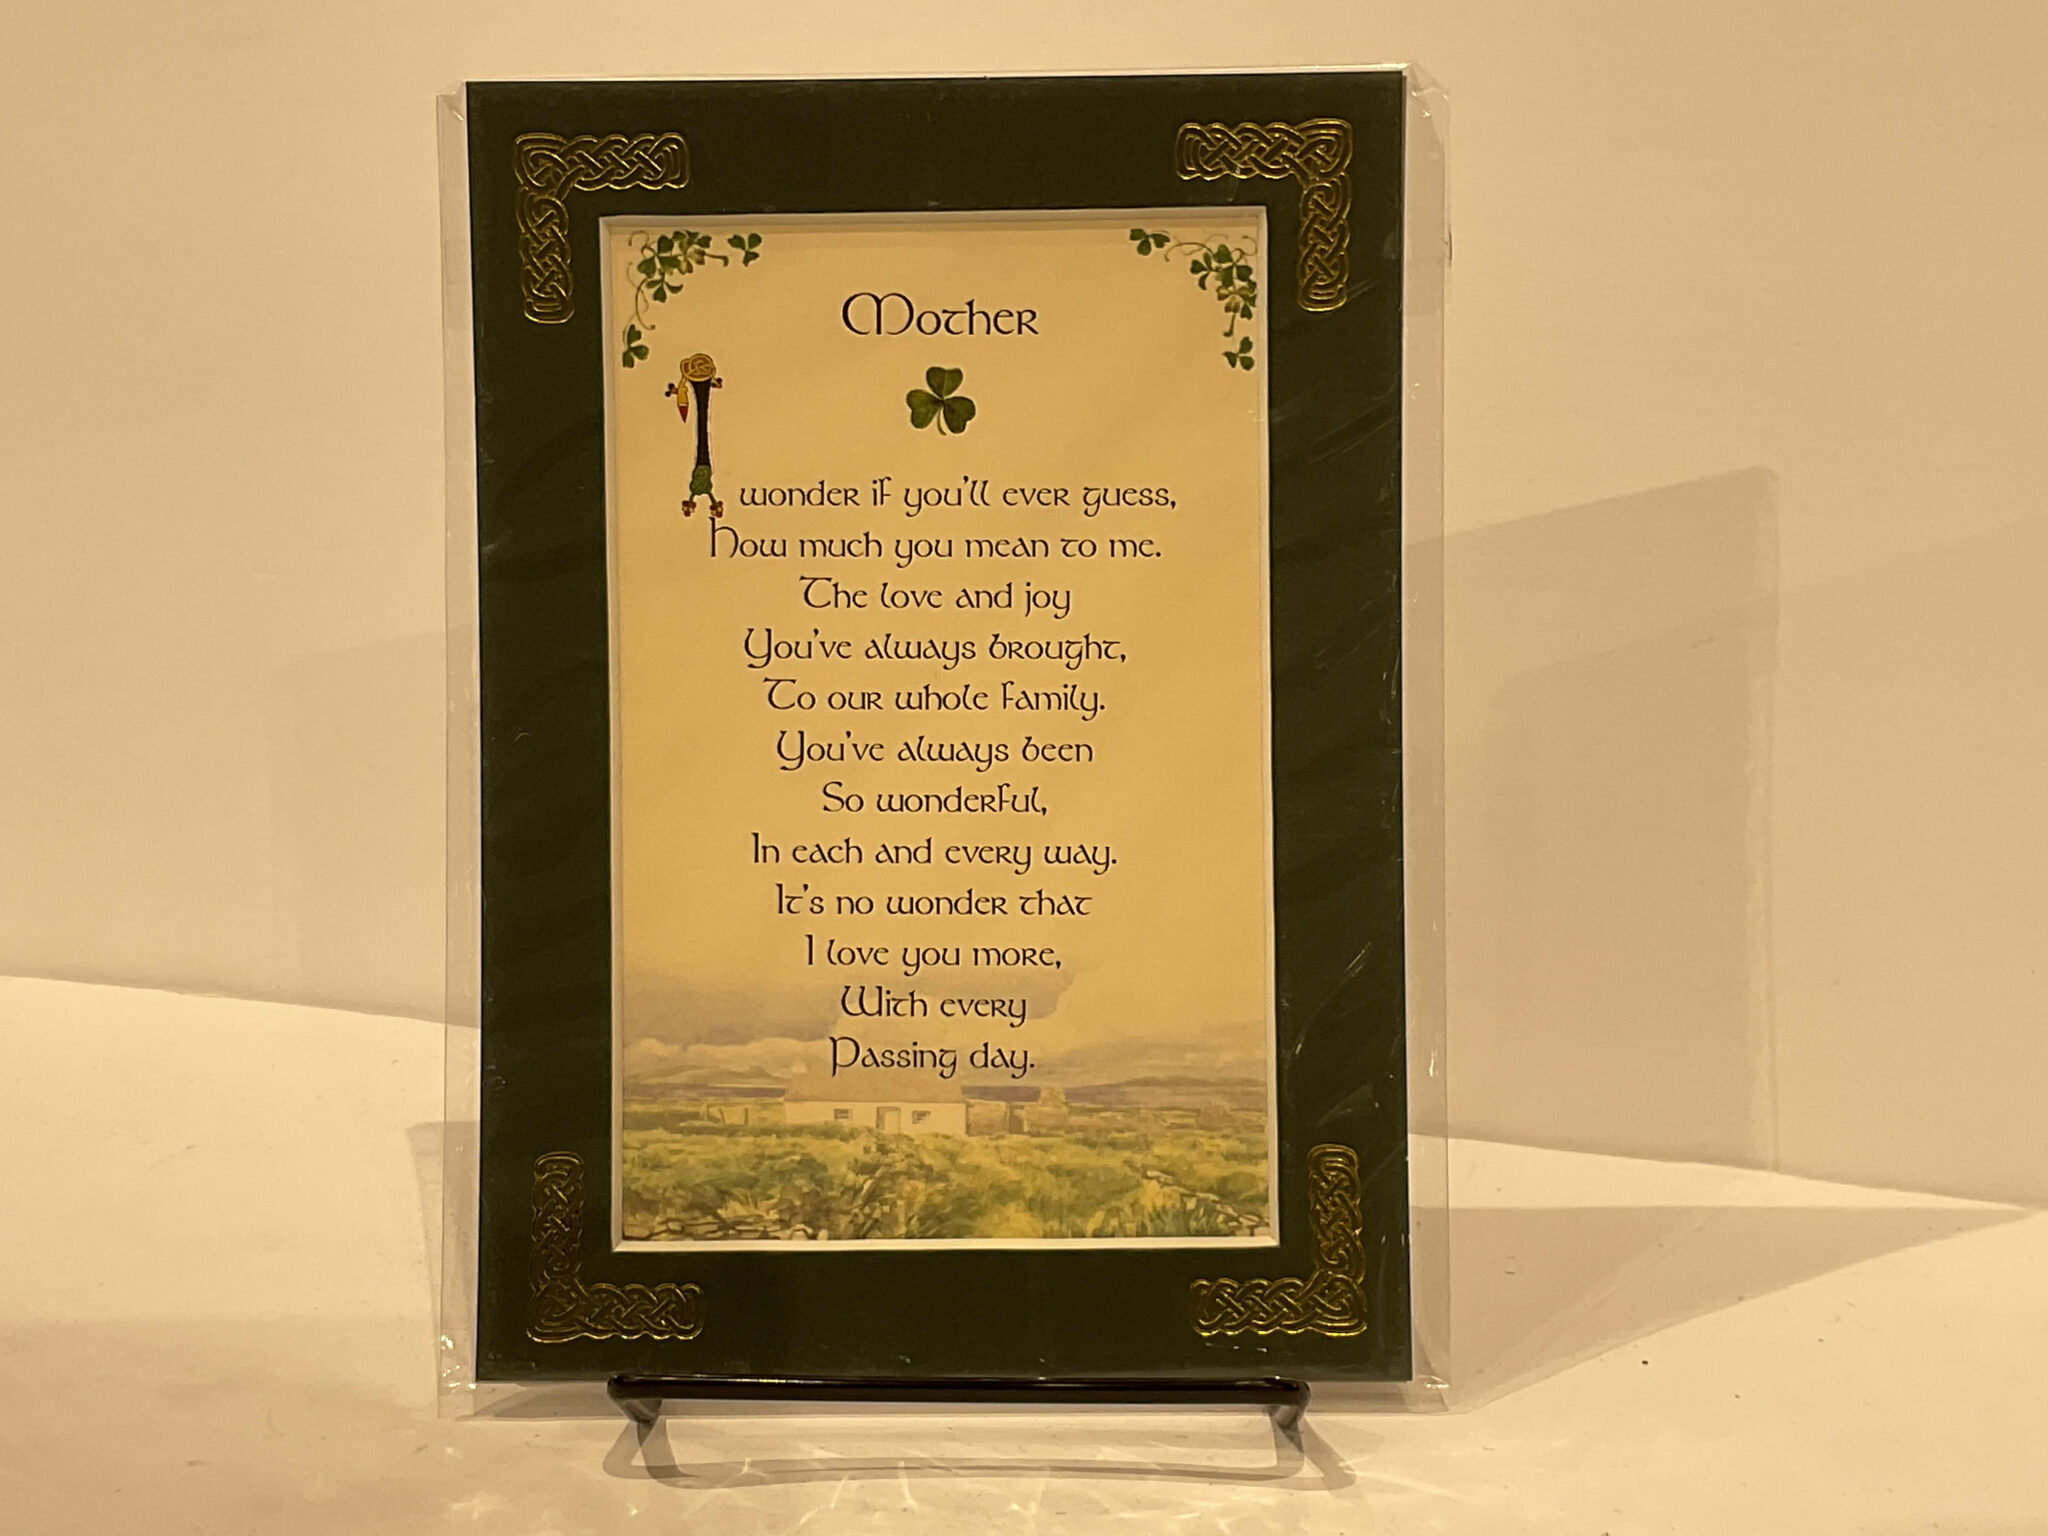 Mother
I wonder if you'll ever guess,
How much you mean to me.
The love and joy
You've always brought,
To our whole family.
You've always been
So wonderful,
In each and every way.
It's no wonder that
I love you more,
With every
Passing day.